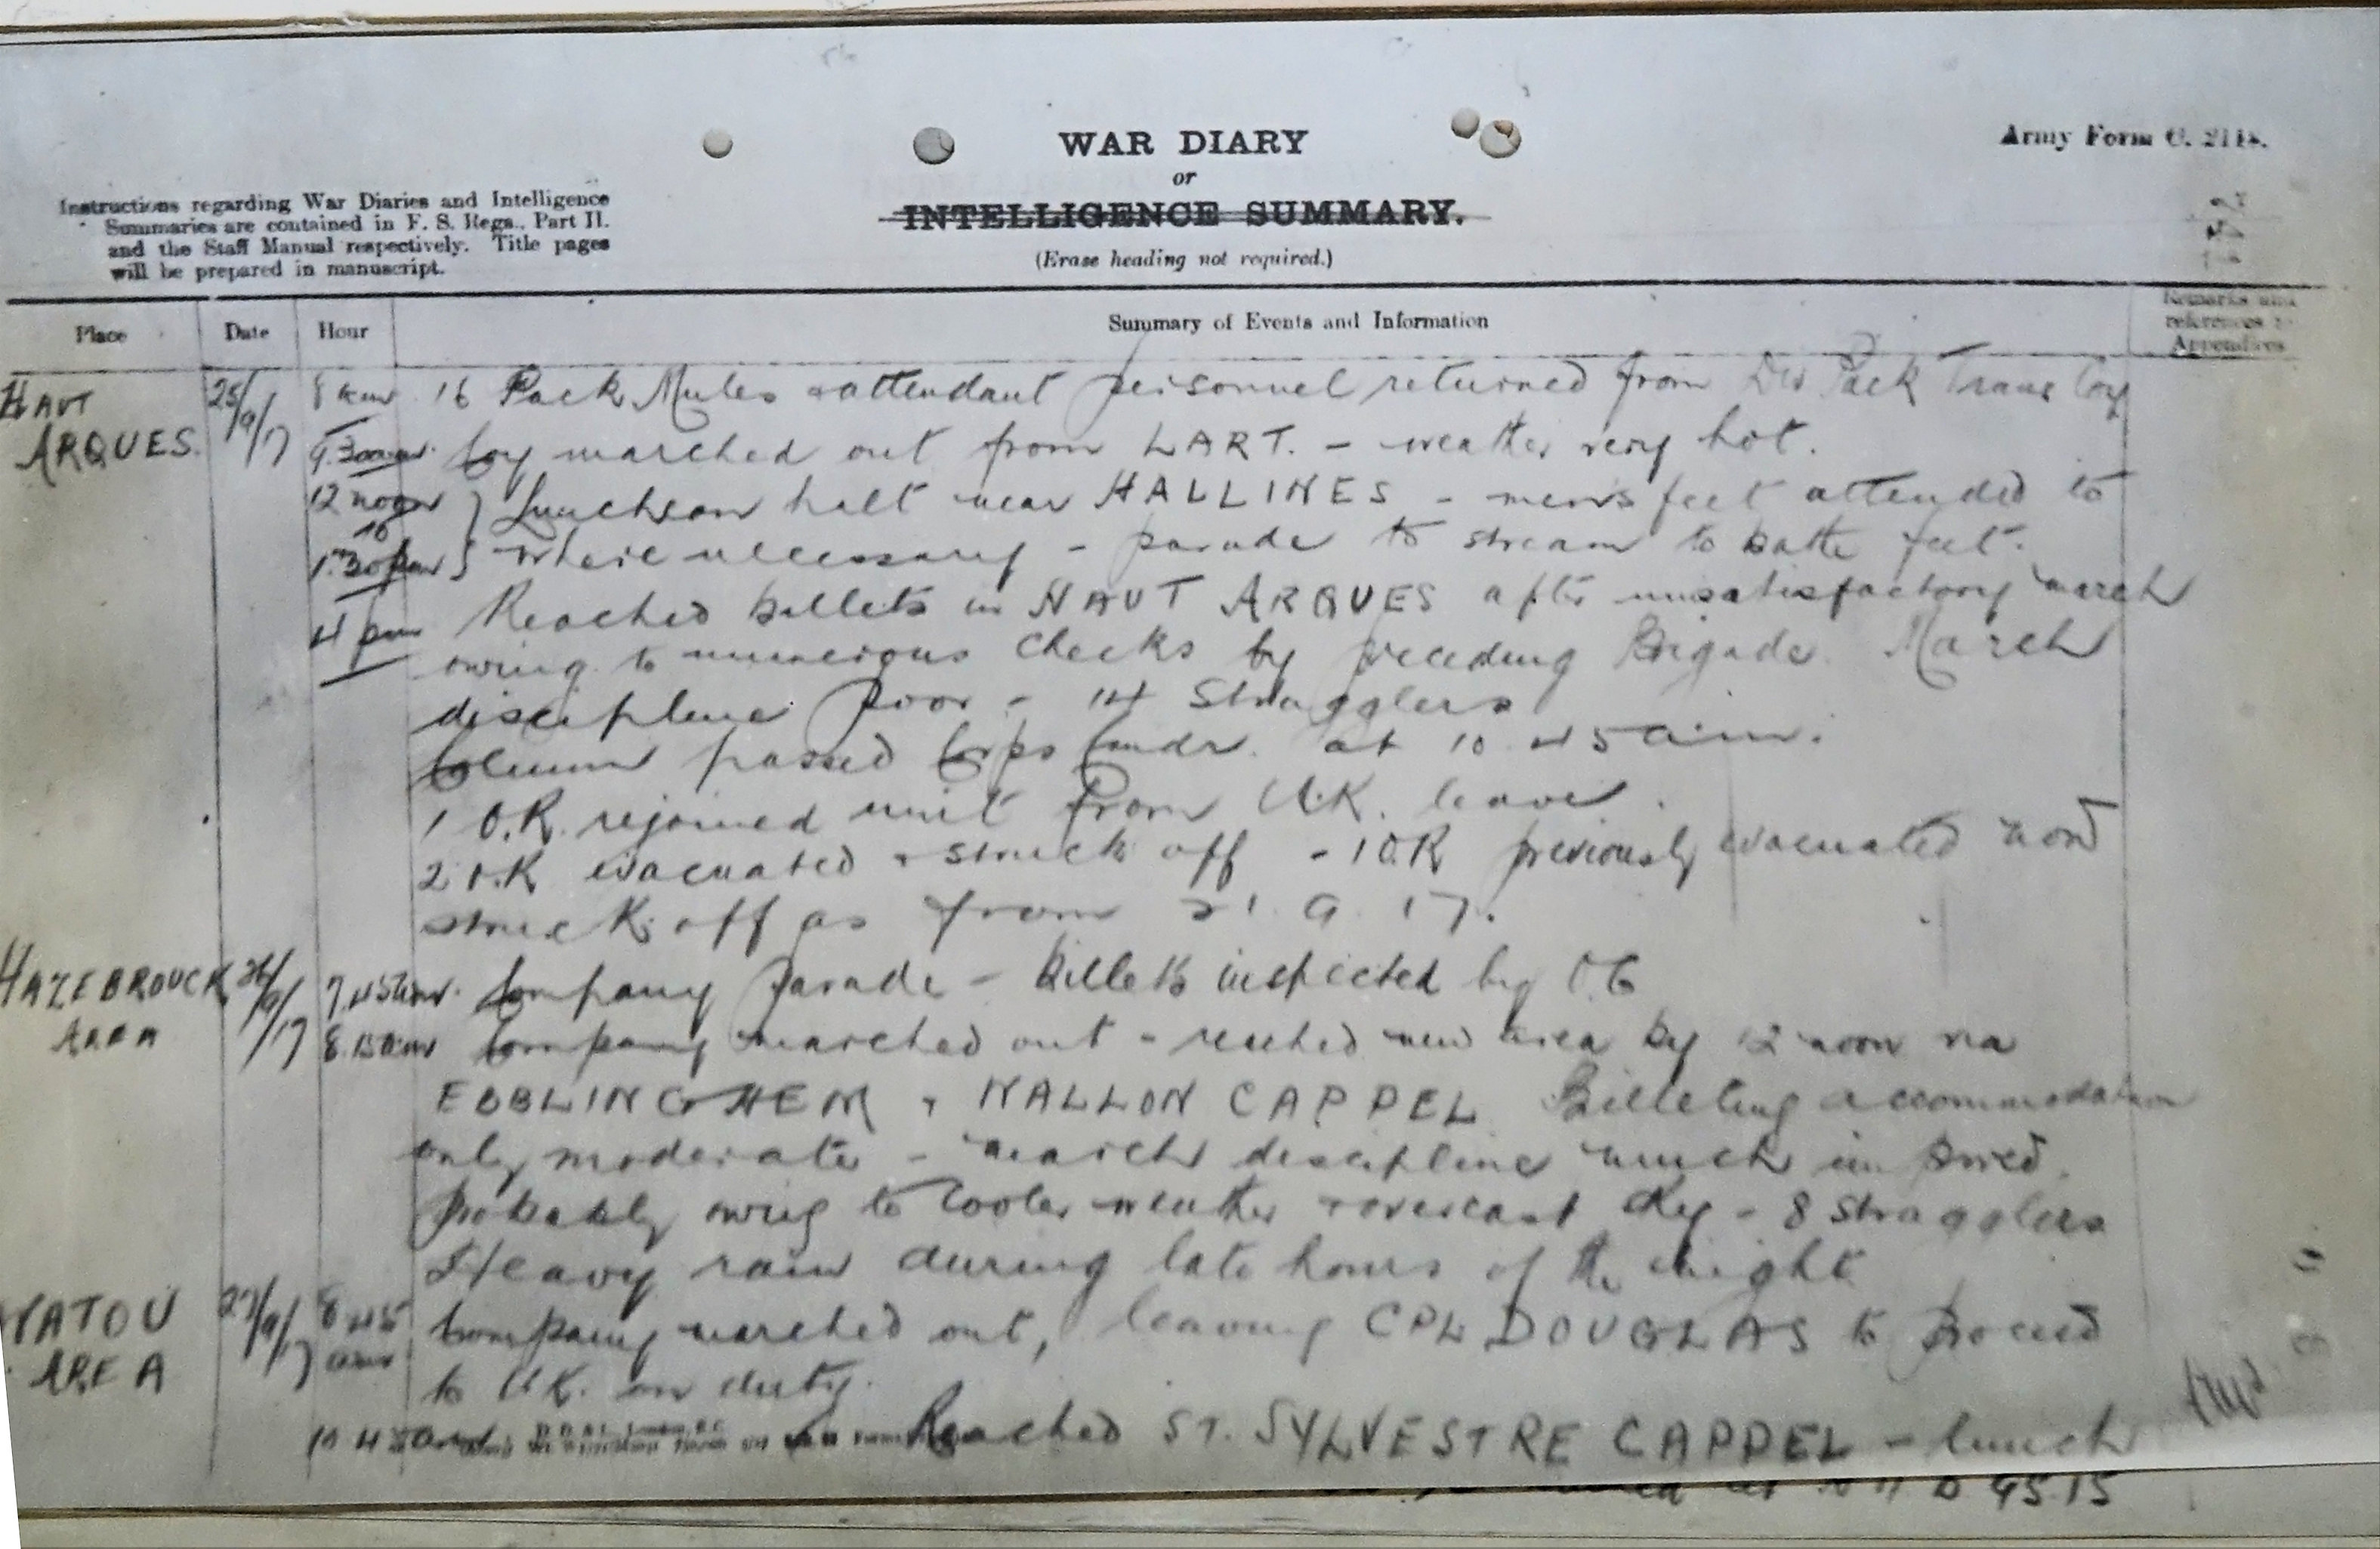 WAR DIARY
or
INTELLIGENCE SUMMARY.
(Erase heading not required.)
Army Form C. 2118.
Instructions regarding War Diaries and Intelligence
Summaries are contained in F. S. Regs., Part II.
and the Staff Manual respectively. Title pages
will be prepared in manuscript.
Place Date Hour Summary of Events and Information Remarks and references to Appendices
HAUT ARQUES. 25/9/17 8 am 16 Pack Mules & attendant personnel returned from Div Pack Trans Coy
9.30am. Coy marched out from LART. - weather very hot.
12 noon } Luncheon halt near HALLINES - men's feet attended to
to 1.30pm } where necessary - parade to stream to bathe feet.
4 pm Reached billets in HAUT ARQUES after unsatisfactory march
owing to numerous checks by preceding Brigade. March
discipline poor - 14 Stragglers
Column passed Corps Comdr. at 10.45 a.m.
1 O.R. rejoined unit from U.K. leave.
2 O.R evacuated & struck off - 1 O.R previously evacuated now
struck off as from 21.9.17.
HAZEBROUCK AREA 26/9/17 7.45am. Company Parade - billets inspected by O.C
8.15am Company marched out - reached new area by 12 noon via
EBBLINGHEM & WALLON CAPPEL Billeting accommodation
only moderate - march discipline much improved.
probably owing to cooler weather & overcast sky - 8 Stragglers
Heavy rain during late hours of the night
WATOU AREA 27/9/17 8.45 am Company marched out, leaving CPL DOUGLAS to proceed
to U.K. on duty.
Reached ST. SYLVESTRE CAPPEL - lunch